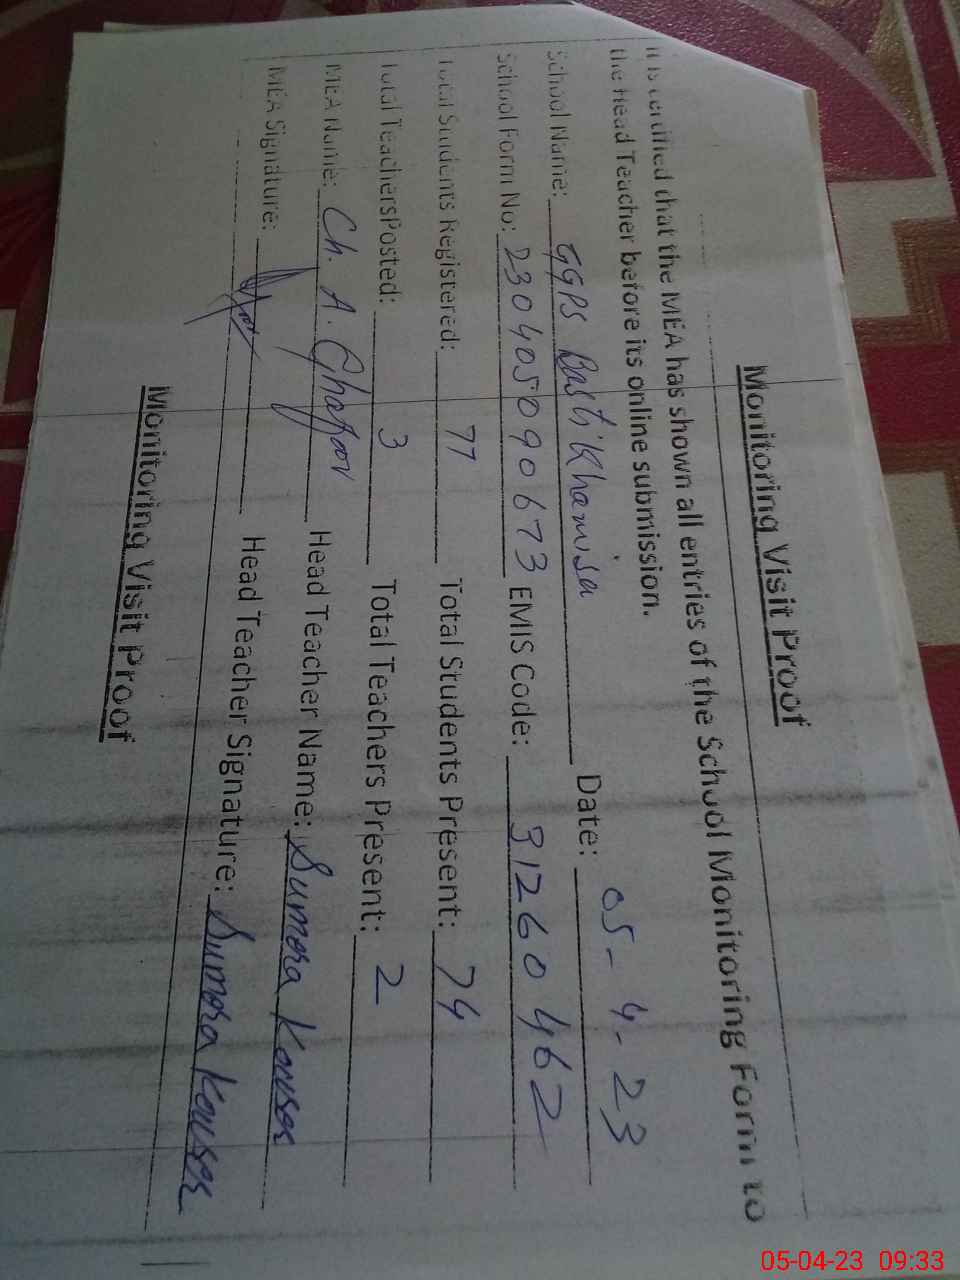 Monitoring Visit Proof
It is certified that the MEA has shown all entries of the School Monitoring Form to
the Head Teacher before its online submission.
School Name: GGPS Basti Khamisa Date: 05-4-23
School Form No: 230405090673 EMIS Code: 31260462
Total Students Registered: 77 Total Students Present: 74
Total TeachersPosted: 3 Total Teachers Present: 2
MEA Name: Ch. A. Ghafoor Head Teacher Name: Sumera Kousar
MEA Signature: Head Teacher Signature: Sumera Kousar
Monitoring Visit Proof
05-04-23 09:33